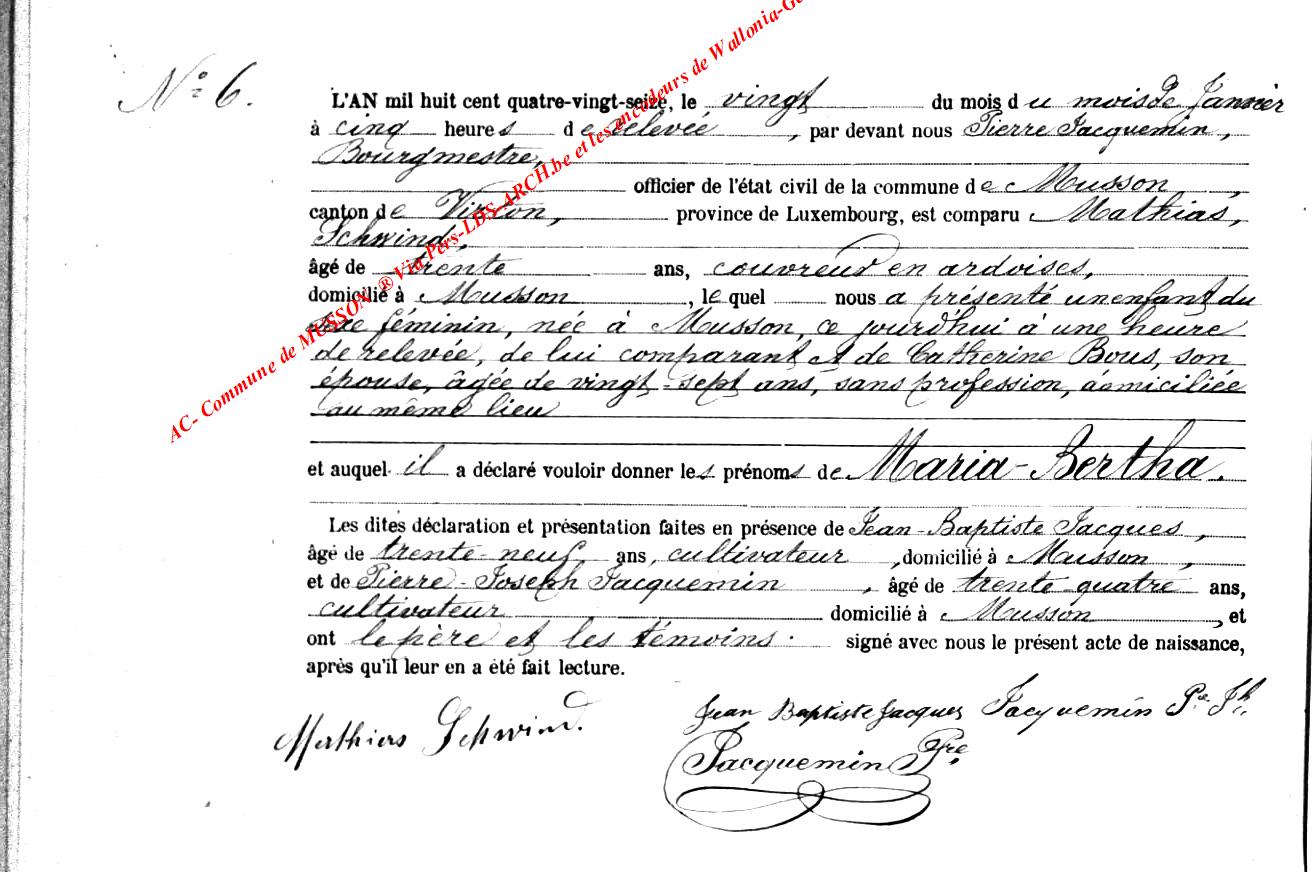 N° 6.
L'AN mil huit cent quatre-vingt-seize, le vingt du mois du mois de Janvier
à cinq heures de relevée, par devant nous Pierre Jacquemin,
Bourgmestre,
officier de l'état civil de la commune de Musson,
canton de Virton, province de Luxembourg, est comparu Mathias,
Schwind,
âgé de trente ans, couvreur en ardoises,
domicilié à Musson, lequel nous a présenté un enfant du
sexe féminin, née à Musson, ce jourd'hui à une heure
de relevée, de lui comparant et de Catherine Bous, son
épouse, âgée de vingt-sept ans, sans profession, domiciliée
au même lieu
et auquel il a déclaré vouloir donner les prénoms de Maria-Bertha.
Les dites déclaration et présentation faites en présence de Jean-Baptiste Jacques,
âgé de trente-neuf ans, cultivateur, domicilié à Musson,
et de Pierre-Joseph Jacquemin, âgé de trente quatre ans,
cultivateur domicilié à Musson, et
ont le père et les témoins signé avec nous le présent acte de naissance,
après qu'il leur en a été fait lecture.
Mathias Schwind. Jean Baptiste Jacques Jacquemin Pre Jh
Jacquemin Pre
AC- Commune de MUSSON ® Via Pers-LDS-ARCH.be et les encodeurs de Wallonia-Ge